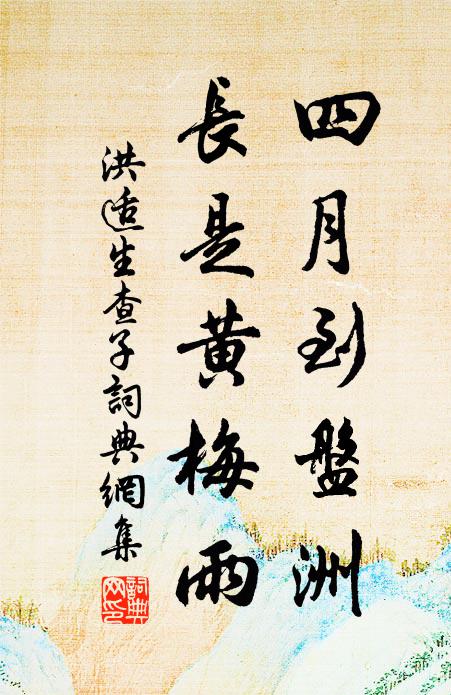 四月到盤洲
長是黃梅雨
洪适生查子詞典網集
詞典網印